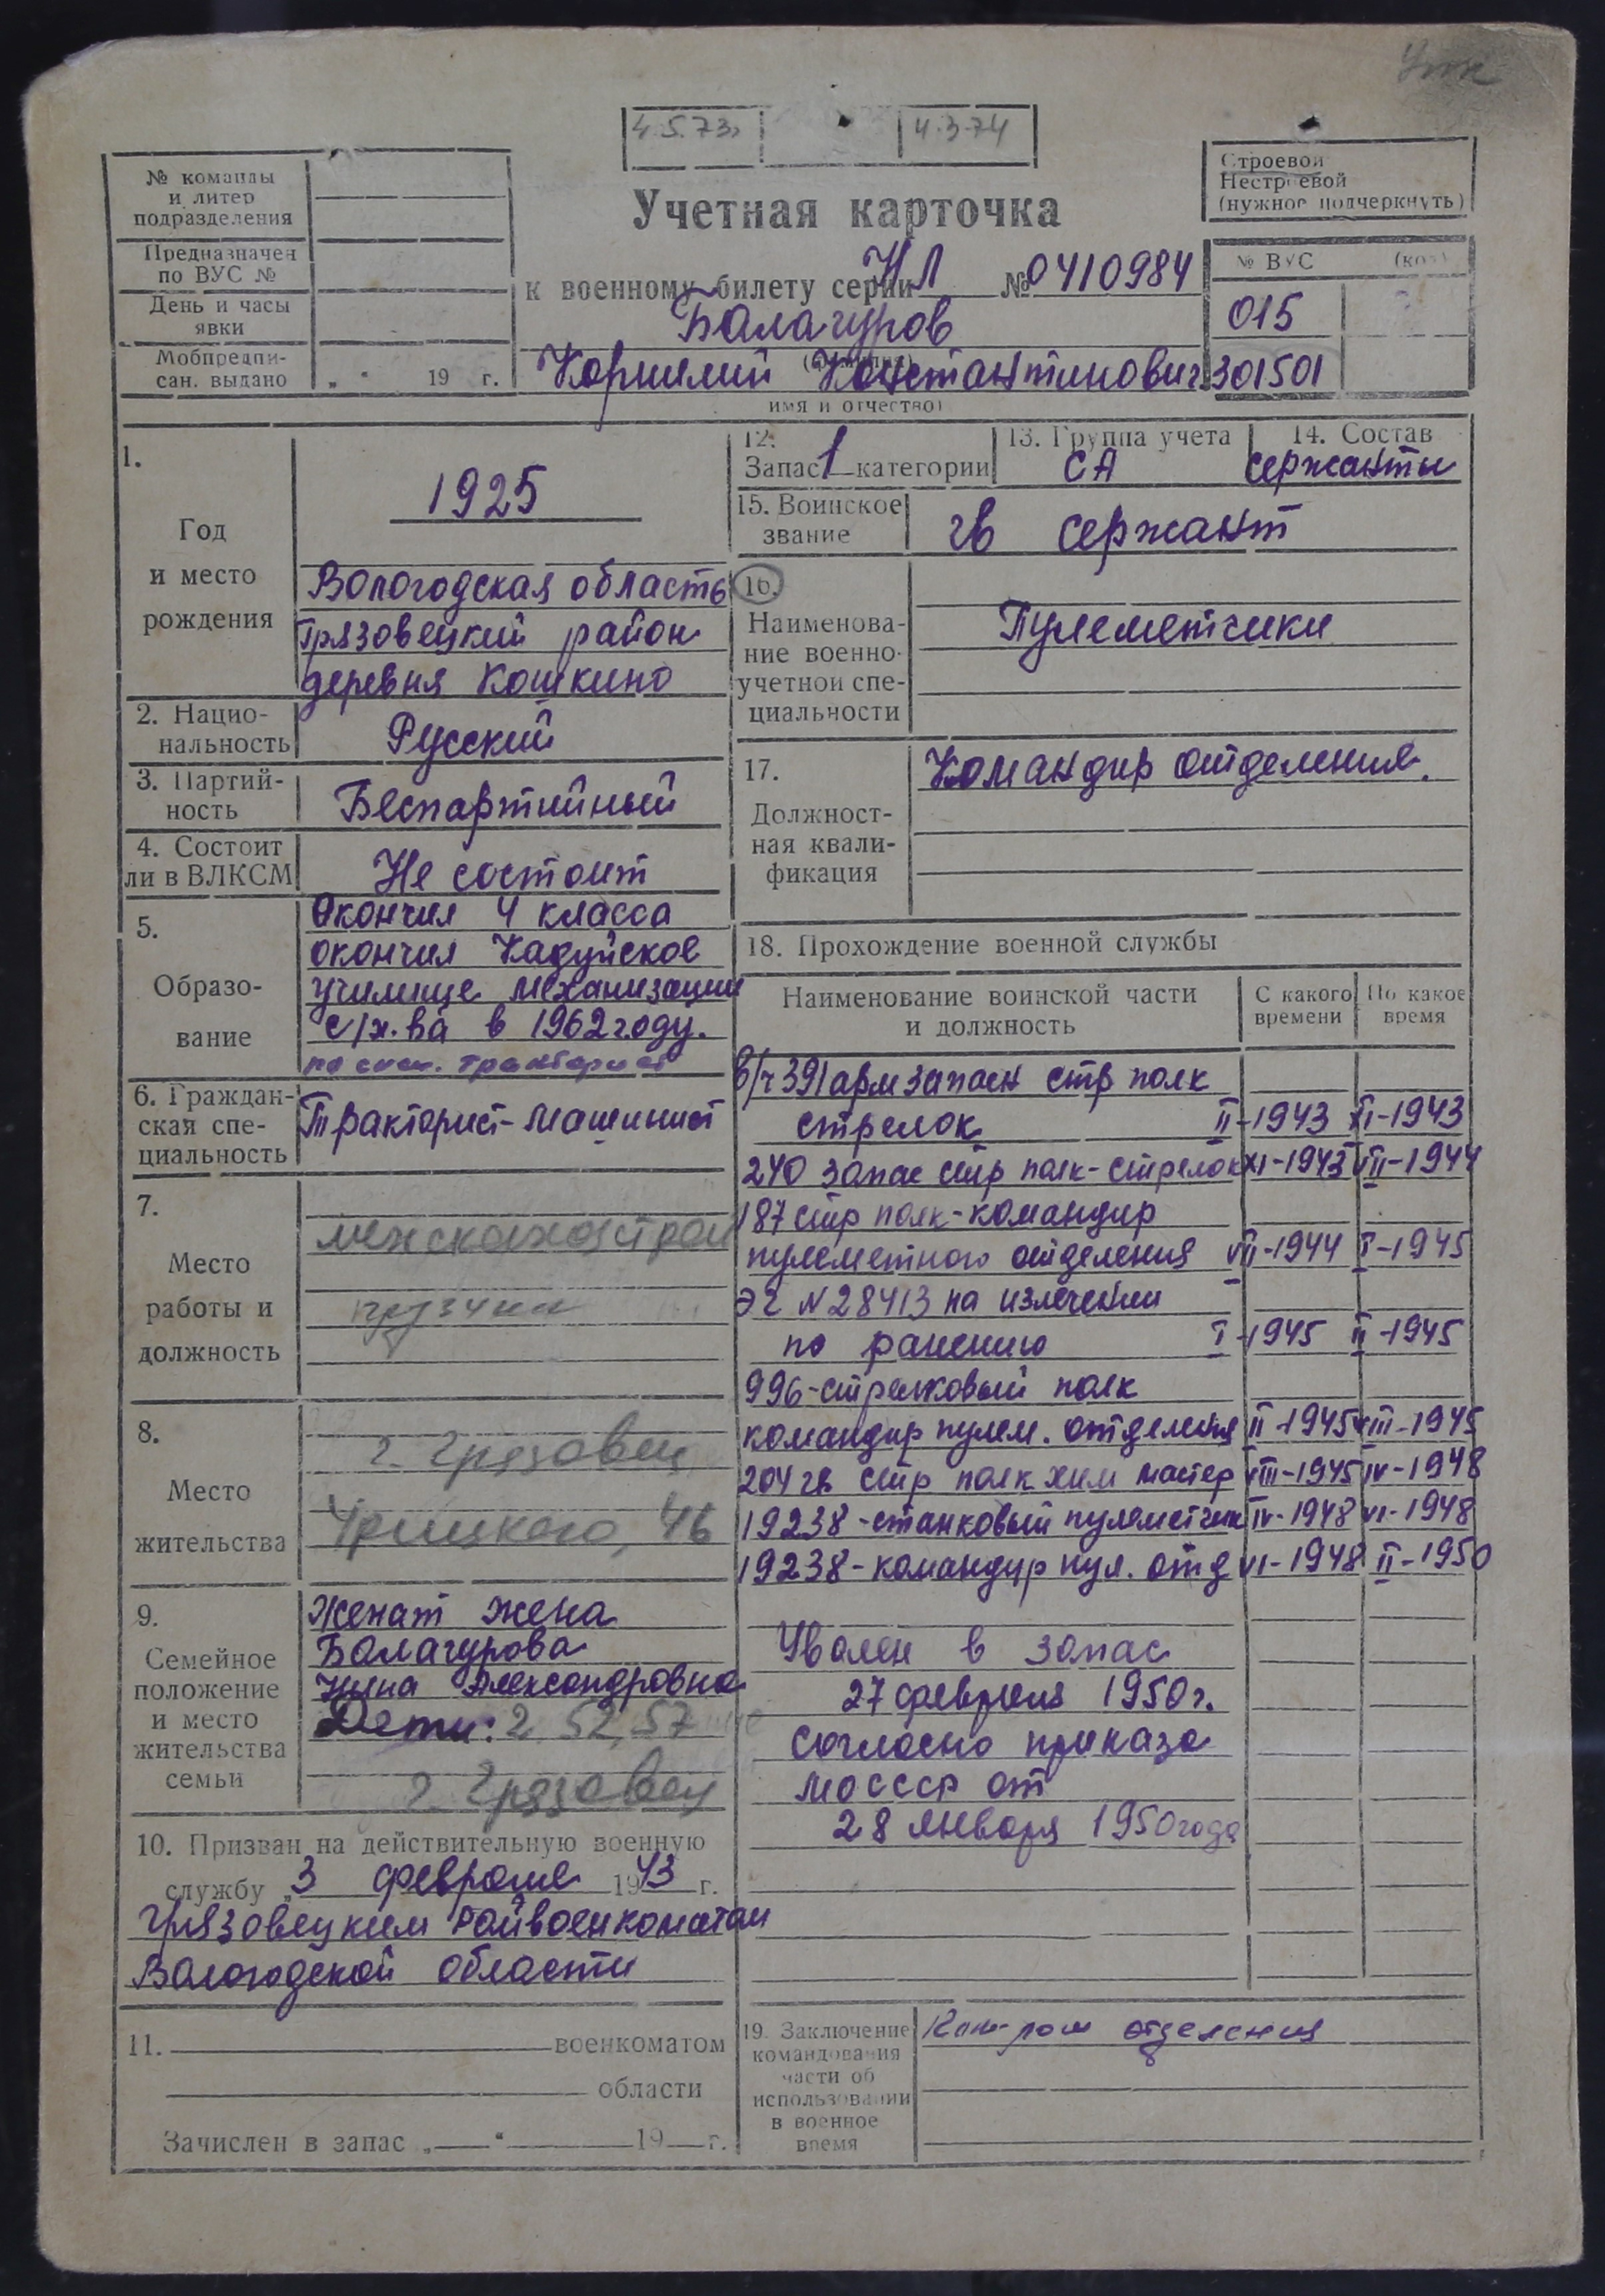 4.5.73г
4.3.74
Строевой
Нестроевой
(нужное подчеркнуть)
№ команды
и литер
подразделения
Предназначен
по ВУС №
День и часы
явки
Мобпредпи-
сан. выдано „ “ 19 г.
Учетная карточка
к военному билету серии НЛ № 0410984
Балагуров
Корнилий Константинович
имя и отчество)
№ ВУС (код)
015
301501
1.
Год
и место
рождения
1925
Вологодская область
Грязовецкий район
деревня Кошкино
2. Нацио-
нальность
Русский
3. Партий-
ность
Беспартийный
4. Состоит
ли в ВЛКСМ
Не состоит
5.
Образо-
вание
Окончил 4 класса
окончил Кадуйское
училище механизации
с/х.ва в 1962 году.
по спец. тракторист
6. Граждан-
ская спе-
циальность
Тракторист-машинист
7.
Место
работы и
должность
межколхозстрой
грузчик
8.
Место
жительства
г. Грязовец
Урицкого, 46
9.
Семейное
положение
и место
жительства
семьи
Женат жена
Балагурова
Нина Александровна
Дети: 2 52, 57
г. Грязовец
10. Призван на действительную военную
службу „3 февраля 1943 г.
Грязовецким Райвоенкоматом
Вологодской области
11. военкоматом
области
Зачислен в запас „ “ 19 г.
12.
Запас 1 категории
13. Группа учета
СА
14. Состав
сержанты
15. Воинское
звание
гв сержант
16.
Наименова-
ние военно-
учетной спе-
циальности
Пулеметчики
17.
Должност-
ная квали-
фикация
Командир отделения.
18. Прохождение военной службы
Наименование воинской части
и должность
С какого
времени
По какое
время
в/ч 391 арм запасн стр полк
стрелок II-1943 XI-1943
240 запас стр полк-стрелок XI-1943 VIII-1944
187 стр полк-командир
пулеметного отделения VIII-1944 I-1945
ЭГ N 28413 на излечении
по ранению I-1945 II-1945
996-стрелковый полк
командир пулем. отделения II-1945 VIII-1945
204 гв стр полк хим мастер VIII-1945 IV-1948
19238-станковый пулеметчик IV-1948 VI-1948
19238-командир пул. отд VI-1948 II-1950
Уволен в запас
27 февраля 1950 г.
согласно приказа
МО СССР от
28 января 1950 года
19. Заключение
командования
части об
использовании
в военное
время
Ком-ром отделения